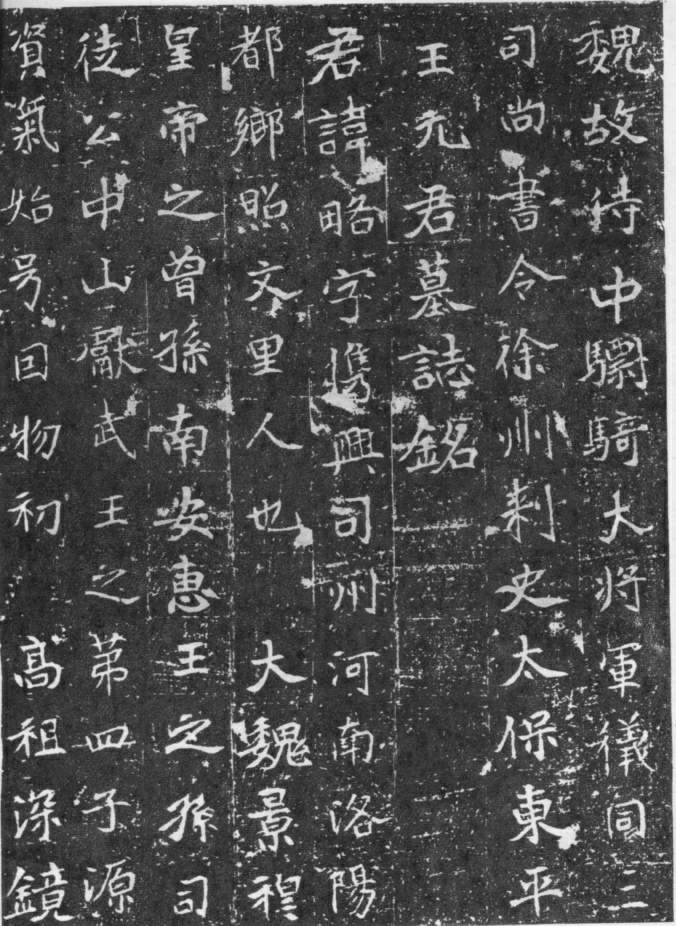 魏故侍中驃騎大將軍儀同三
司尚書令徐州刺史太保東平
王元君墓誌銘
君諱略字㒞興司州河南洛陽
都鄉照文里人也大魏景穆
皇帝之曾孫南安惠王之孫司
徒公中山獻武王之苐四子源
資氣始号回物初高祖深鏡